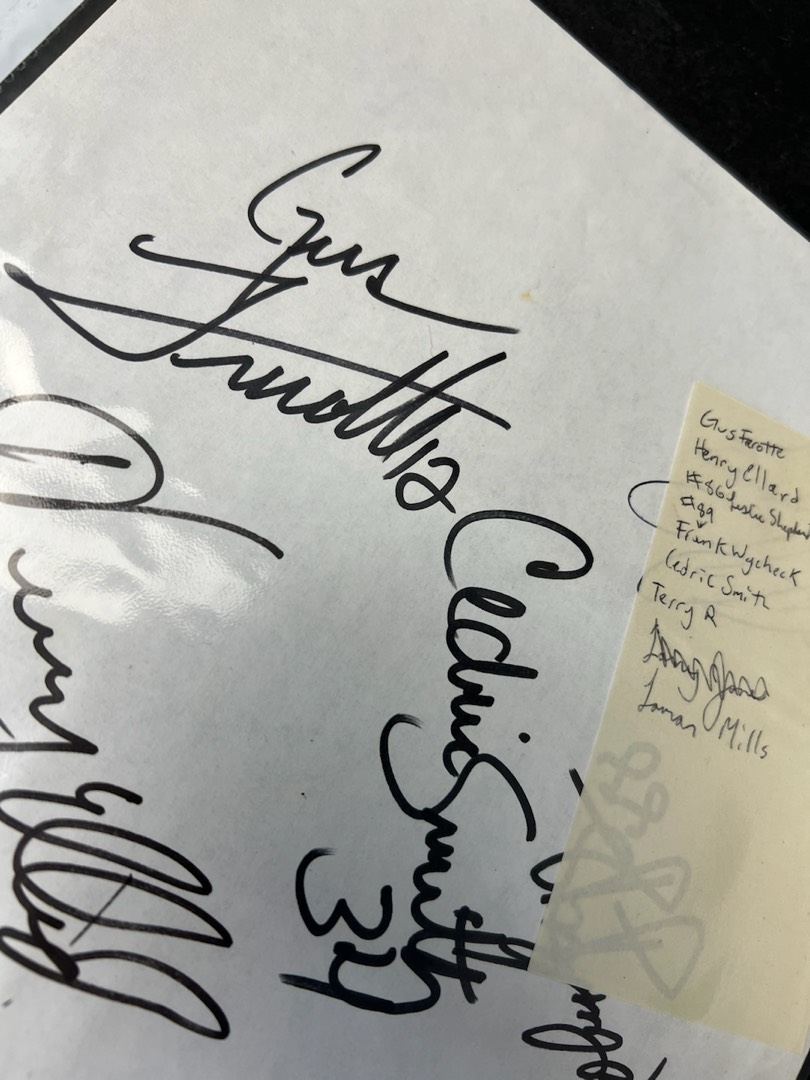 Gus
Frerotte 12
Henry Ellard
Cedric Smith
34
Gus Ferotte
Henry Ellard
#86 Leslie Shepherd
#89
Frank Wycheck
Cedric Smith
Terry R
Lamar Mills